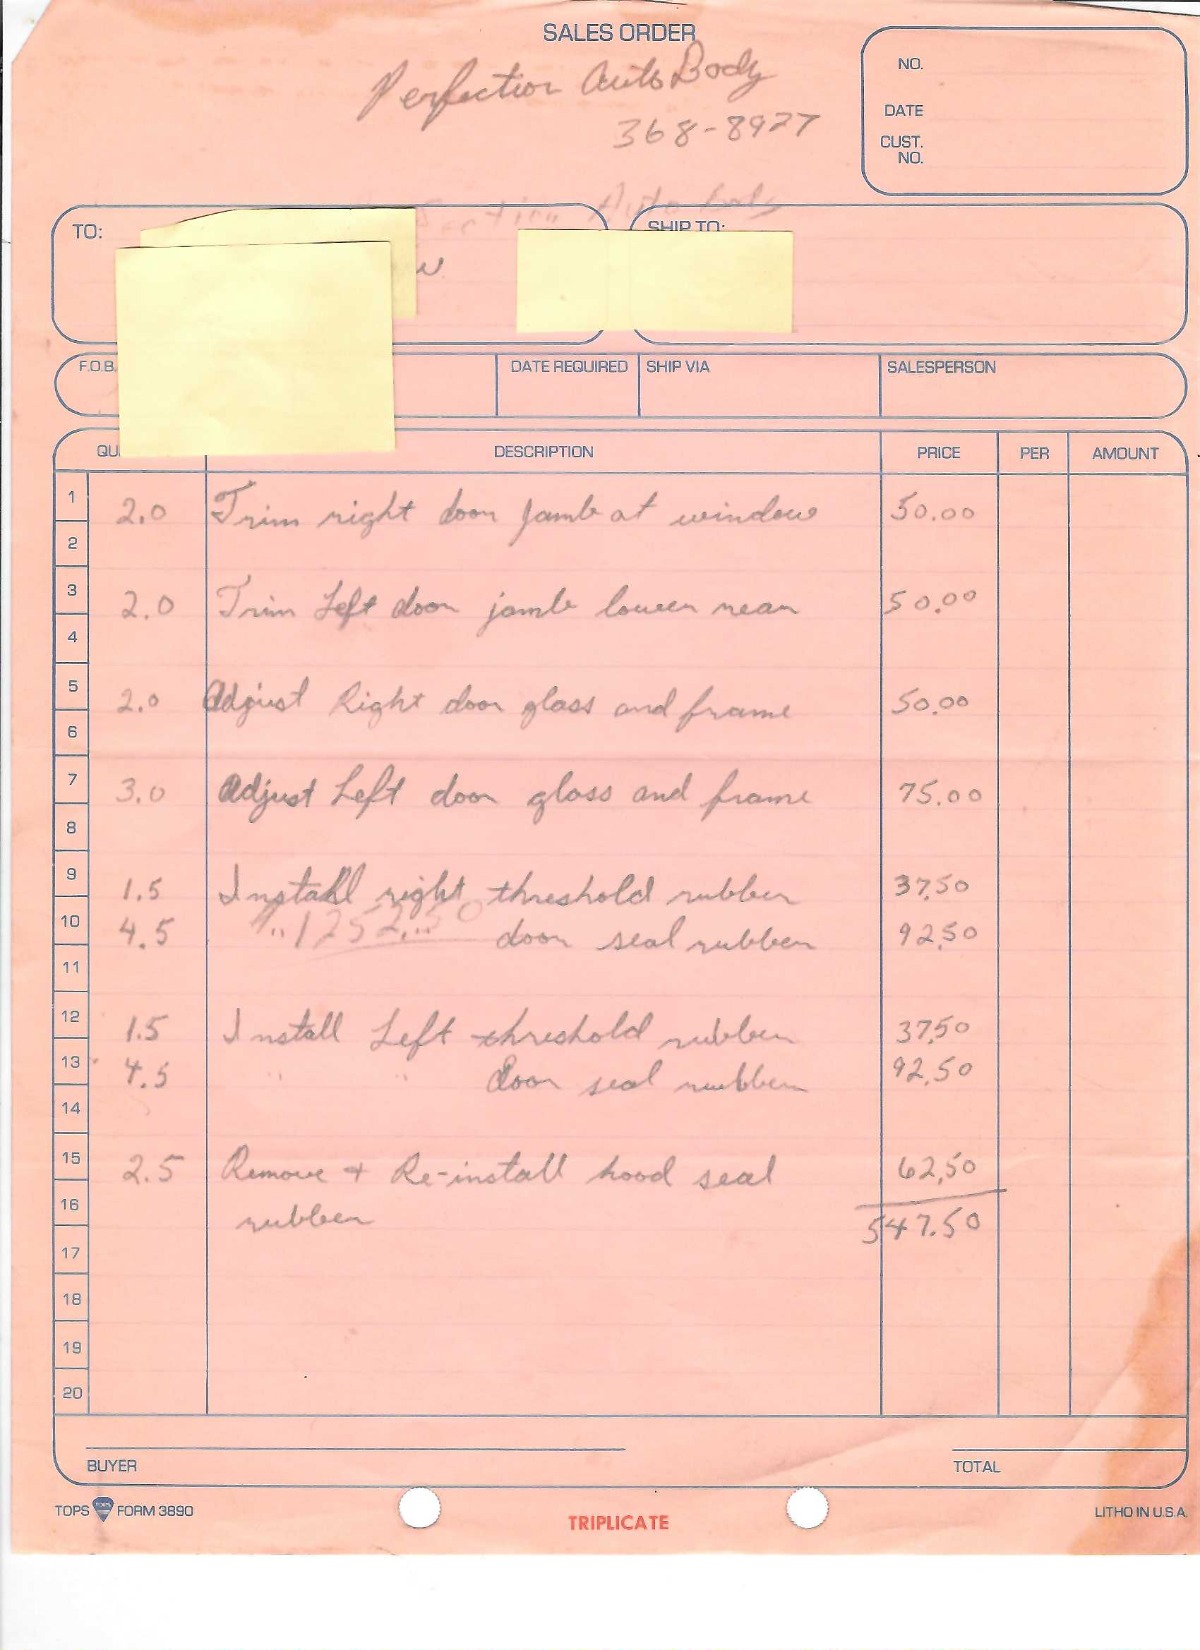 SALES ORDER
Perfection Auto Body
368-8927
NO.
DATE
CUST.
NO.
Auto Body
TO:
SHIP TO:
F.O.B.
DATE REQUIRED
SHIP VIA
SALESPERSON
QU
DESCRIPTION
PRICE
PER
AMOUNT
1 2.0 Trim right door Jamb at window 50.00
2
3 2.0 Trim Left door jamb lower rear 50.00
4
5 2.0 Adjust Right door glass and frame 50.00
6
7 3.0 Adjust Left door glass and frame 75.00
8
9 1.5 Install right threshold rubber 37.50
10 4.5 " 1252.50 door seal rubber 92.50
11
12 1.5 Install Left threshold rubber 37.50
13 4.5 " " door seal rubber 92.50
14
15 2.5 Remove + Re-install hood seal 62.50
16 rubber 547.50
17
18
19
20
BUYER
TOTAL
TOPS FORM 3890
TRIPLICATE
LITHO IN U.S.A.